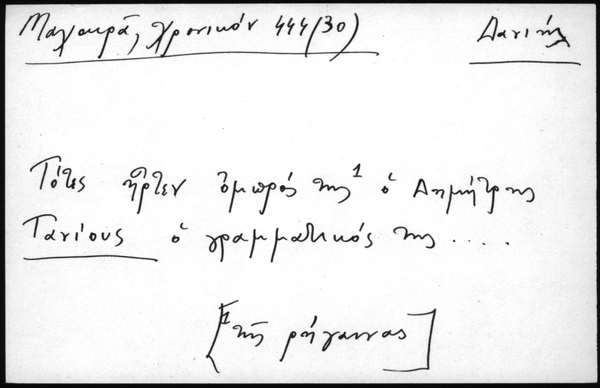 Μαχαιρᾶ, Χρονικόν 444(30) Δανιήλ
Τότες ἦρτεν ὀμπρός της¹ ὁ Δημήτρης
Τανίους ὁ γραμματικός της ....
[¹ τῆς ρήγαινας]